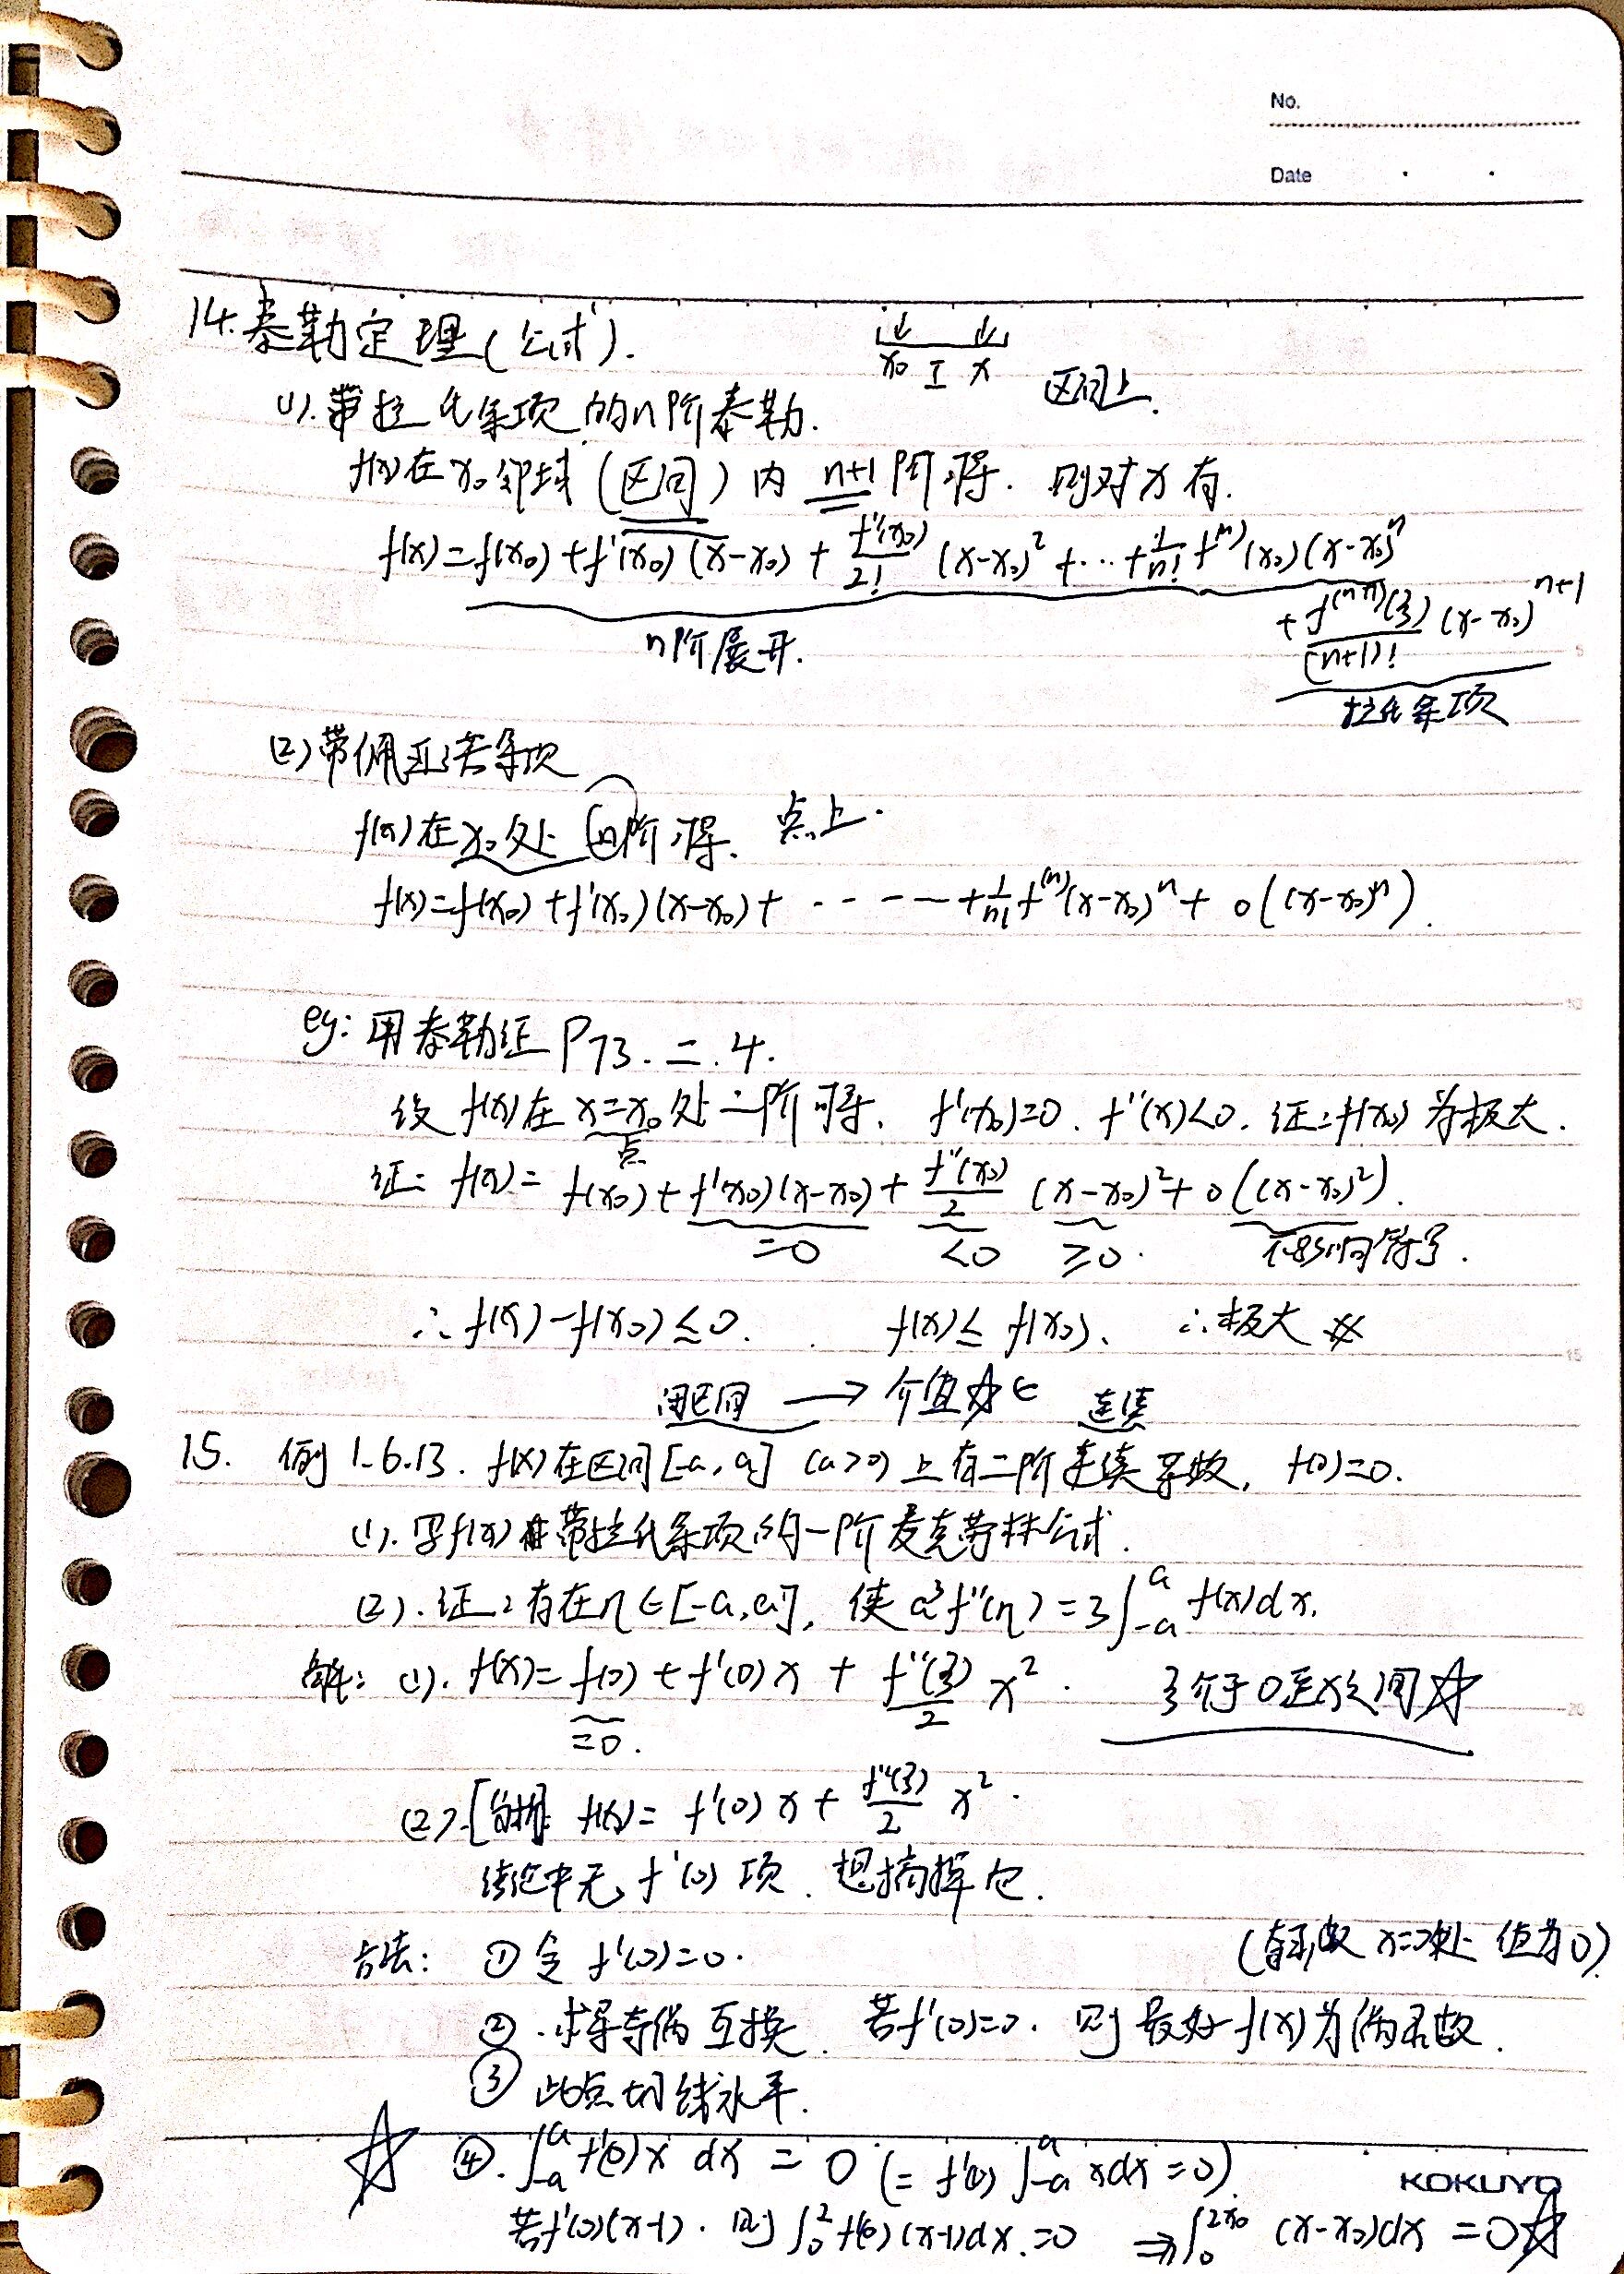 No.
Date
14. 泰勒定理(公式).
x₀ I x 区间上.
(1). 带拉氏余项的n阶泰勒.
f(x)在x₀邻域(区间)内 n+1阶可导. 则对x有.
f(x)=f(x₀)+f'(x₀)(x-x₀)+f''(x₀)/2! (x-x₀)²+…+1/n! f⁽ⁿ⁾(x₀)(x-x₀)ⁿ
+f⁽ⁿ⁺¹⁾(ξ)/(n+1)! (x-x₀)ⁿ⁺¹
n阶展开.
拉氏余项
(2)带佩亚诺余项
f(x)在x₀处n阶可导. 点上.
f(x)=f(x₀)+f'(x₀)(x-x₀)+ ······ +1/n! f⁽ⁿ⁾(x-x₀)ⁿ+ o((x-x₀)ⁿ).
eg: 用泰勒证 P73. 二. 4.
设 f(x)在 x=x₀处二阶可导. f'(x₀)=0. f''(x)<0. 证: f(x₀) 为极大.
点
证: f(x)= f(x₀)+f'(x₀)(x-x₀)+f''(x₀)/2 (x-x₀)²+o((x-x₀)²).
=0 <0 ≥0. 不影响符号.
∴ f(x)-f(x₀)≤0. f(x)≤f(x₀). ∴极大 ※
闭区间 → 介值☆ ∈ 连续
15. 例1.6.13. f(x)在区间[-a,a] (a>0)上有二阶连续导数, f(0)=0.
(1). 写f(x)带拉氏余项的一阶麦克劳林公式.
(2). 证: 存在η∈[-a,a], 使 a³f''(η)=3∫₋ₐᵃ f(x)dx.
解: (1). f(x)=f(0)+f'(0)x+f''(ξ)/2 x². ξ介于0至x之间☆
=0.
(2).[分析: f(x)= f'(0)x+f''(ξ)/2 x².
结论中无f'(0)项. 想搞掉它.
方法: ① 令 f'(0)=0.
(奇函数 x=0处 值为0)
②. 求导奇偶互换. 若f'(0)=0. 则最好f(x)为偶函数.
③ 此点切线水平.
☆ ④. ∫₋ₐᵃ f'(0)x dx = 0 (= f'(0)∫₋ₐᵃ xdx=0).
KOKUYO
若f'(0)(x-1). 则∫₀² f'(0)(x-1)dx.=0 ⇒∫₀^{2x₀} (x-x₀)dx =0☆